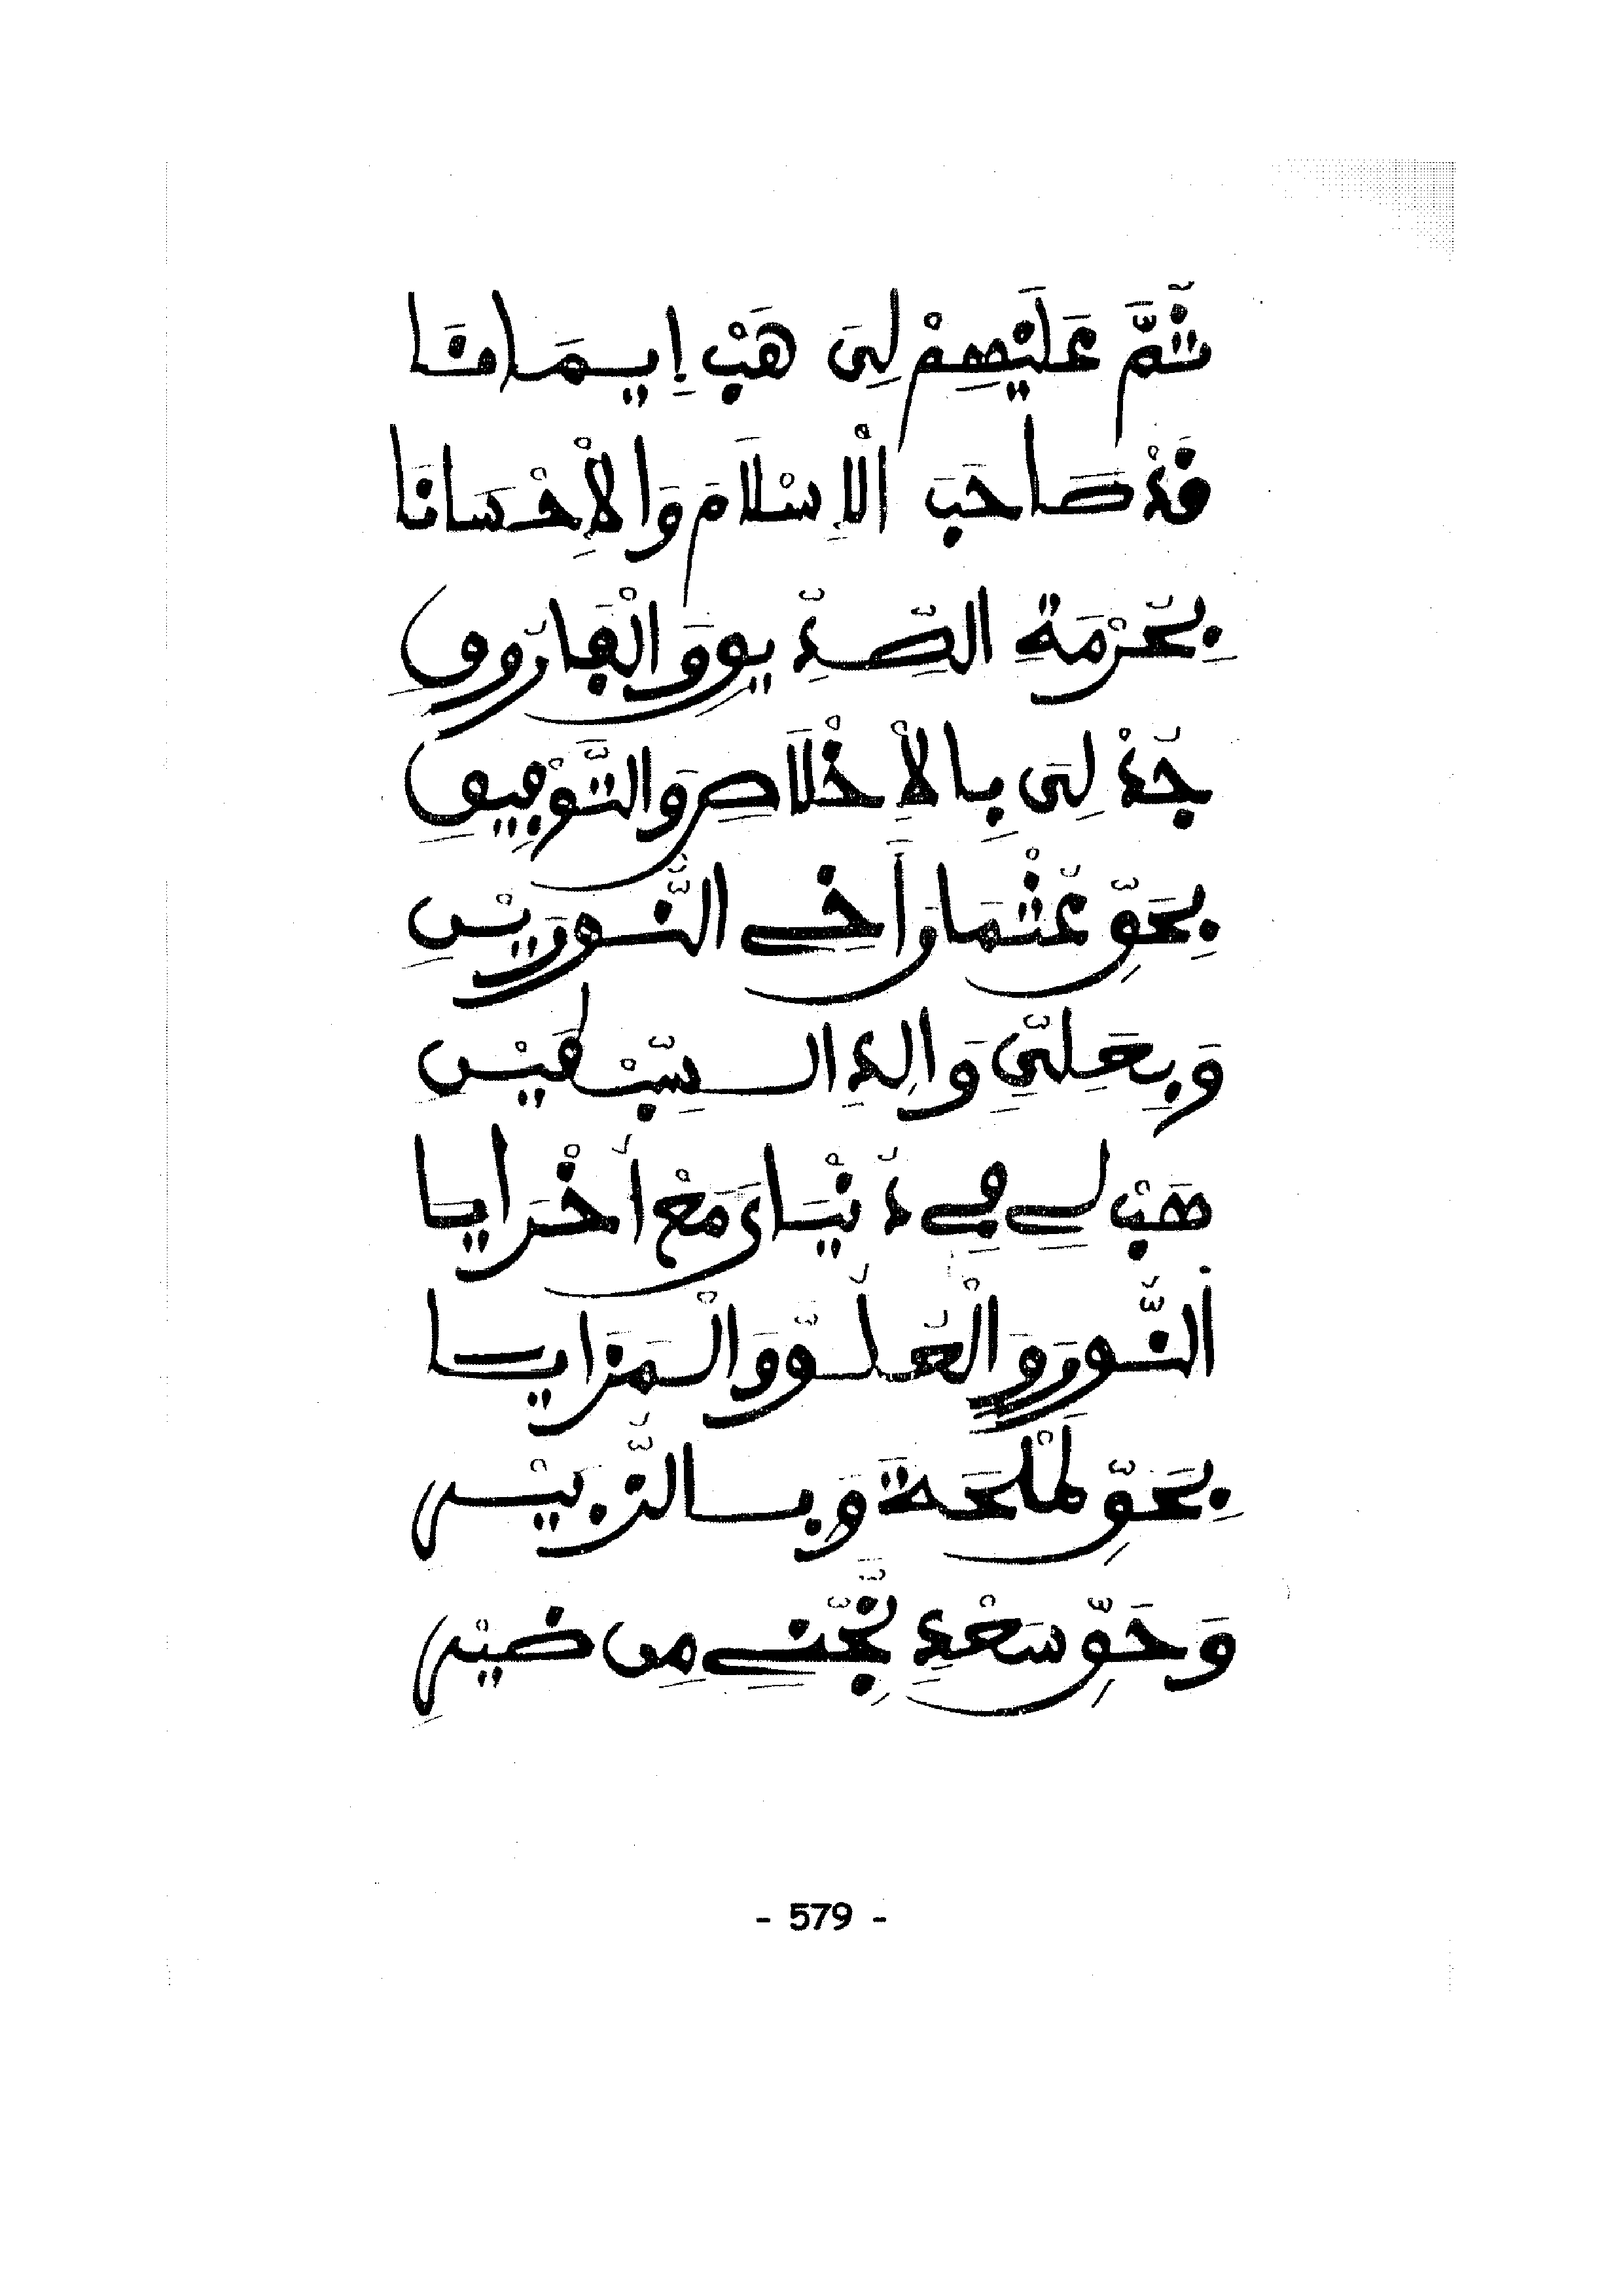 ثُمَّ عَلَيْهِمْ لِىَ هَبْ إِيمَانَا
قَدْ صَاحَبَ الْإِسْلَامَ وَالْإِحْسَانَا
بِحُرْمَةِ الصِّدِّيقِ وَالْفَارُوقِ
جُدْ لِى بِالْإِخْلَاصِ وَالتَّوْفِيقِ
بِحَقِّ عُثْمَانَ أَخِى النُّورَيْنِ
وَبِعَلِىٍّ وَالِدِ السِّبْطَيْنِ
هَبْ لِى فِى دُنْيَاىَ مَعْ أُخْرَايَا
النُّورَ وَالْعُلُوَّ وَالْمَزَايَا
بِحَقِّ طَلْحَةَ وَبِالزُّبَيْرِ
وَحَقِّ سَعْدٍ نَجِّنِى مِن ضَيْرِ
- 579 -